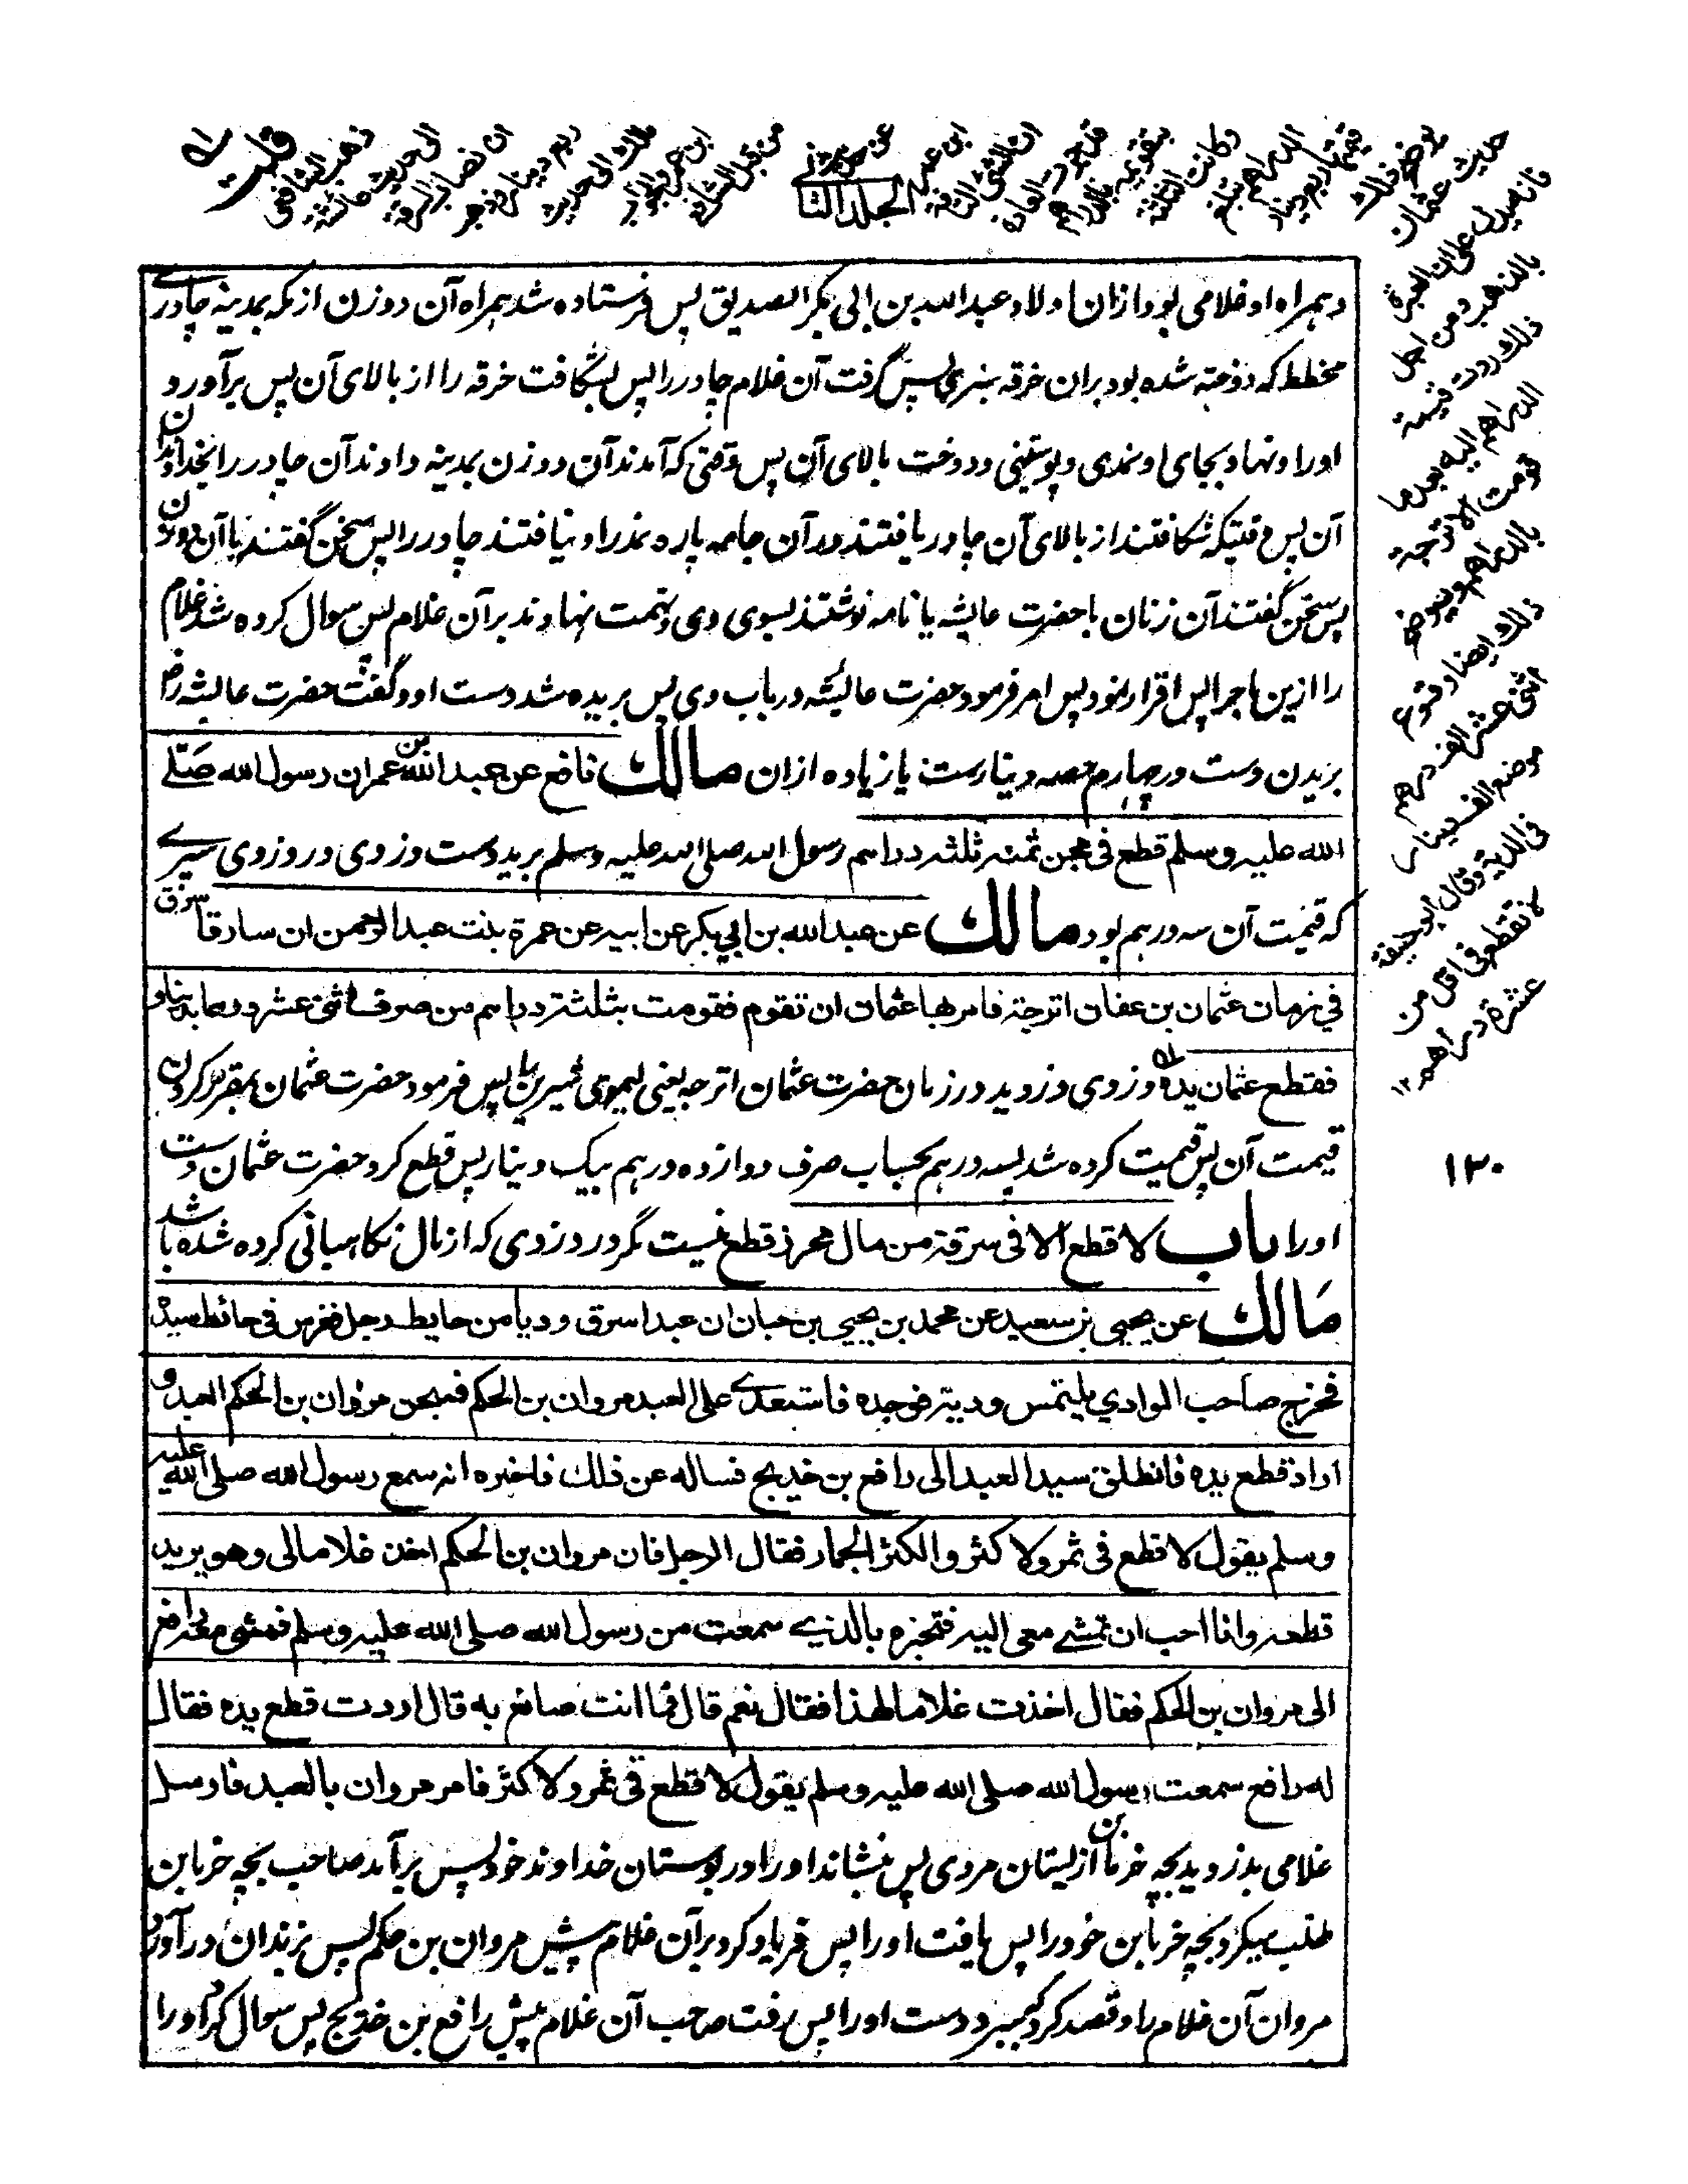 الجلد الثانی
وهمراه او غلامی بود ازان اولاد عبدالله بن ابی بکر الصدیق پس فرستاده شد همراه آن دو زن از مکه بمدینه چادرے
مخطط که دوخته شده بود بران خرقه سبزی پس گرفت آن غلام چادر را پس بشگافت خرقه را از بالای آن پس برآورد
اورا و نهاد بجای او نمدی و پوستینی و دوخت بالای آن پس وقتی که آمدند آن دو زن بمدینه دادند آن چادر را بخداوندان
آن پس وقتیکه شگافتند از بالای آن چادر یافتند در آن جامه پاره نمد را و نیافتند چادر را پس سخن گفتند با آن دو زن
پس سخن گفتند آن زنان با حضرت عایشه یا نامه نوشتند بسوی وی و تهمت نهادند بر آن غلام پس سوال کرده شد غلام
را ازین ماجرا پس اقرار نمود پس امر فرمود حضرت عایشه در باب وی پس بریده شد دست او و گفت حضرت عایشه رض
بریدن دست در چهارم حصه دینارست یا زیاده ازان مالك نافع عن عبد الله بن عمر ان رسول الله صَلّے
الله علیه وسلم قطع فی مجن ثمنه ثلثة دراهم رسول الله صلی الله علیه وسلم برید دست دزدی در دزدی سپرے
که قیمت آن سه درهم بود مالك عن عبد الله بن ابي بكر عن ابيه عن عمرة بنت عبد الرحمن ان سارقا سرق
في زمان عثمان بن عفان اترجة فامر بها عثمان ان تقوم فقومت بثلثة دراهم من صرف اثنی عشر درهما بدینار
فقطع عثمان یده دزدی دزدید در زمان حضرت عثمان اترجه یعنی لیموی شیرین را پس فرمود حضرت عثمان بمقرر کردن
قیمت آن پس قیمت کرده شد بسه درهم بحساب صرف دوازده درهم بیک دینار پس قطع کرد حضرت عثمان دست
اورا باب لا قطع الا فی سرقة من مال محرز قطع نیست مگر در دزدی که از مال نگاهبانی کرده شده باشد
مَالك عن یحیی بن سعید عن محمد بن یحیی بن حبان ان عبدا سرق ودیا من حایط رجل فغرس فی حائط سیده
فخرج صاحب الوادي یلتمس ودیه فوجده فاستعدے علی العبد مروان بن الحكم فسجن مروان بن الحكم العبد و
اراد قطع یده فانطلق سید العبد الی رافع بن خدیج فساله عن ذلك فاخبره انه سمع رسول الله صلی الله علیه
وسلم یقول لا قطع فی ثمر ولا كثر والكثر الجمار فقال الرجل فان مروان بن الحكم اخذ غلاما لی وهو یرید
قطعه وانا احب ان تمشے معی الیه فتخبره بالذے سمعت من رسول الله صلی الله علیه وسلم فمشی معه رافع
الی مروان بن الحكم فقال اخذت غلاما لهذا فقال نعم قال فما انت صانع به قال اردت قطع یده فقال
له رافع سمعت رسول الله صلی الله علیه وسلم یقول لا قطع فی ثمر ولا كثر فامر مروان بالعبد فارسل
غلامی بدزدید بچه خرما بن از بستان مردی پس بنشاند اورا در بوستان خداوند خود پس برآمد صاحب بچه خرما بن
طلب میکرد بچه خرما بن خود را پس یافت اورا پس فریاد کرد بر آن غلام پیش مروان بن حکم پس بزندان در آورد
مروان آن غلام را و قصد کرد که ببرد دست اورا پس رفت صاحب آن غلام پیش رافع بن خدیج پس سوال کرد اورا
حدیث عثمان
فانه یدل علی ان العبرة
بالذهب ومن اجل
ذلك ردت قیمة
الدراهم الیه بعد ما
قومت الاترجة
بالدراهم ویوضح
ذلك ایضا
اثنی عشر الف درهم
الف دینار
فی الدیة وقال ابو حنیفة
لا تقطع فی اقل من
عشرة دراهم ١٢
١٢٠